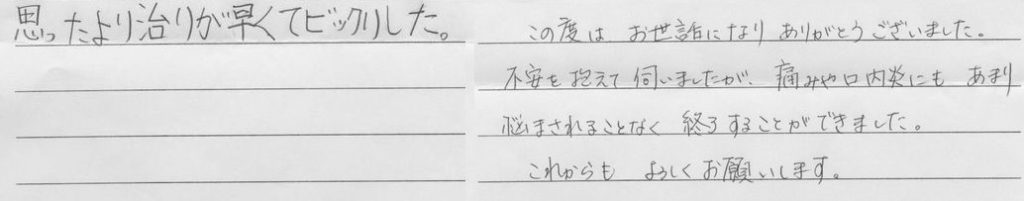 思ったより治りが早くてビックリした。
この度は お世話になり ありがとうございました。
不安を抱えて 伺いましたが、痛みや口内炎にも あまり
悩まされることなく 終了することができました。
これからも よろしくお願いします。